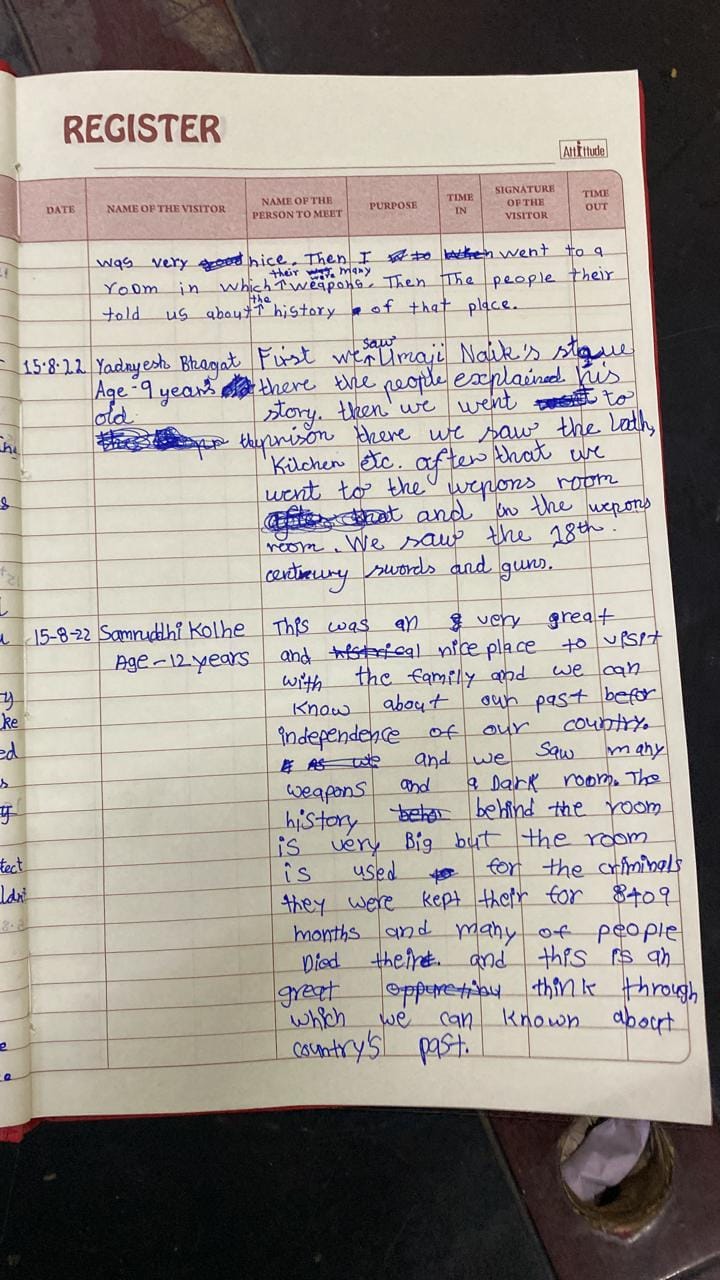 REGISTER
Attitude
DATE NAME OF THE VISITOR NAME OF THE PERSON TO MEET PURPOSE TIME IN SIGNATURE OF THE VISITOR TIME OUT
was very good nice. Then I went to a
room in which their were many weapons. Then The people their
told us about the history of that place.
15.8.22 Yadnyesh Bhagat First we saw Umaji Naik's statue
Age - 9 years there the people explained his
old. story. then we went to
the prison there we saw the Lath,
Kilchen etc. after that we
went to the wepons room
after that and in the wepons
room. We saw the 18th.
centruwy swords and guns.
15-8-22 Samruddhi Kolhe This was an very great
Age - 12 years and histrical nice place to visit
with the family and we can
Know about our past befor
independence of our country.
As we and we saw many
weapons and a Dark room. The
history behor behind the room
is very Big but the room
is used for the criminals
they were kept their for 8to9
months and many of people
Died their. and this is an
great think through
which we can known about
country's past.
ke
ed
tect